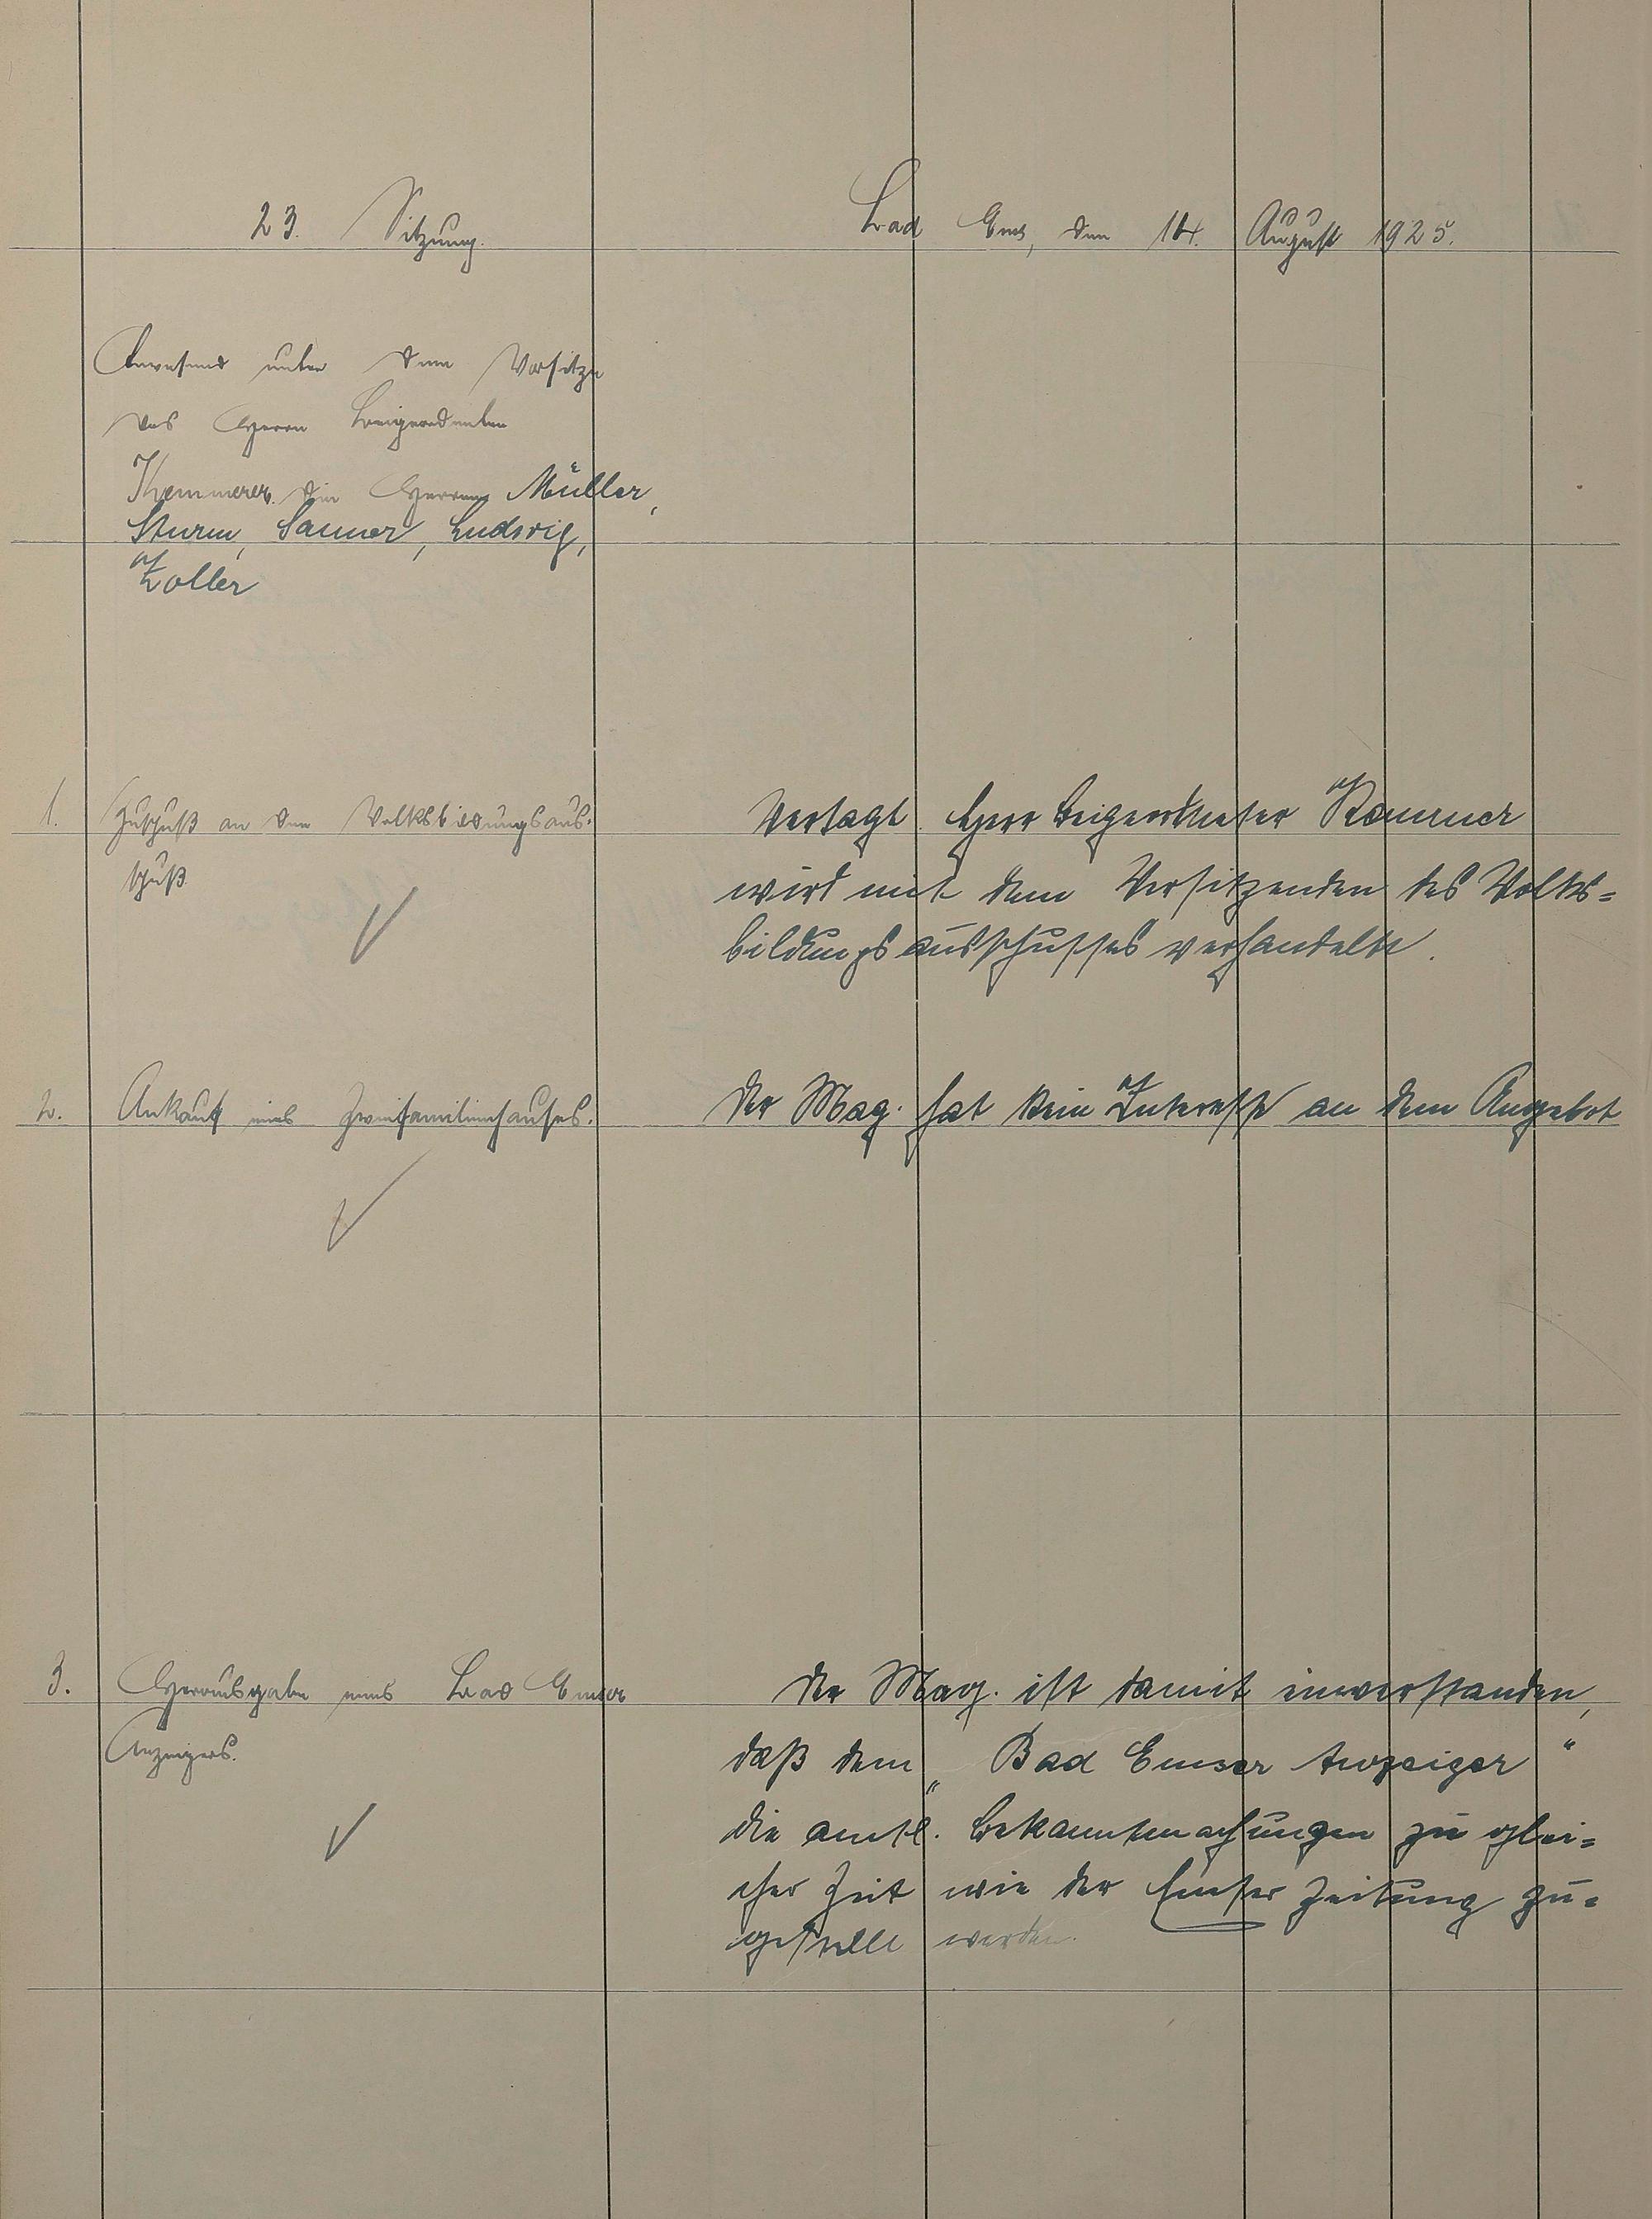 23. Sitzung.
Bad Ems, den 14. August 1925.
Anwesend unter dem Vorsitze
des Herrn Beigeordneten
Kemmerer die Herren Müller,
Sturm, Sauner, Ludwig,
Zoller
1. Zuschuß an den Volksbildungsaus-
schuß
Vertagt. Herr Beigeordneter Kemmerer
wird mit dem Vorsitzenden des Volks=
bildungsausschusses verhandeln.
2. Ankauf eines Zweifamilienhauses.
Der Mag. hat kein Interesse an dem Angebot
3. Herausgabe eines Bad Emser
Anzeigers.
Der Mag. ist damit einverstanden,
daß dem „Bad Emser Anzeiger“
die amtl. Bekanntmachungen zu glei=
cher Zeit wie der Emser Zeitung zu=
gestellt werden.